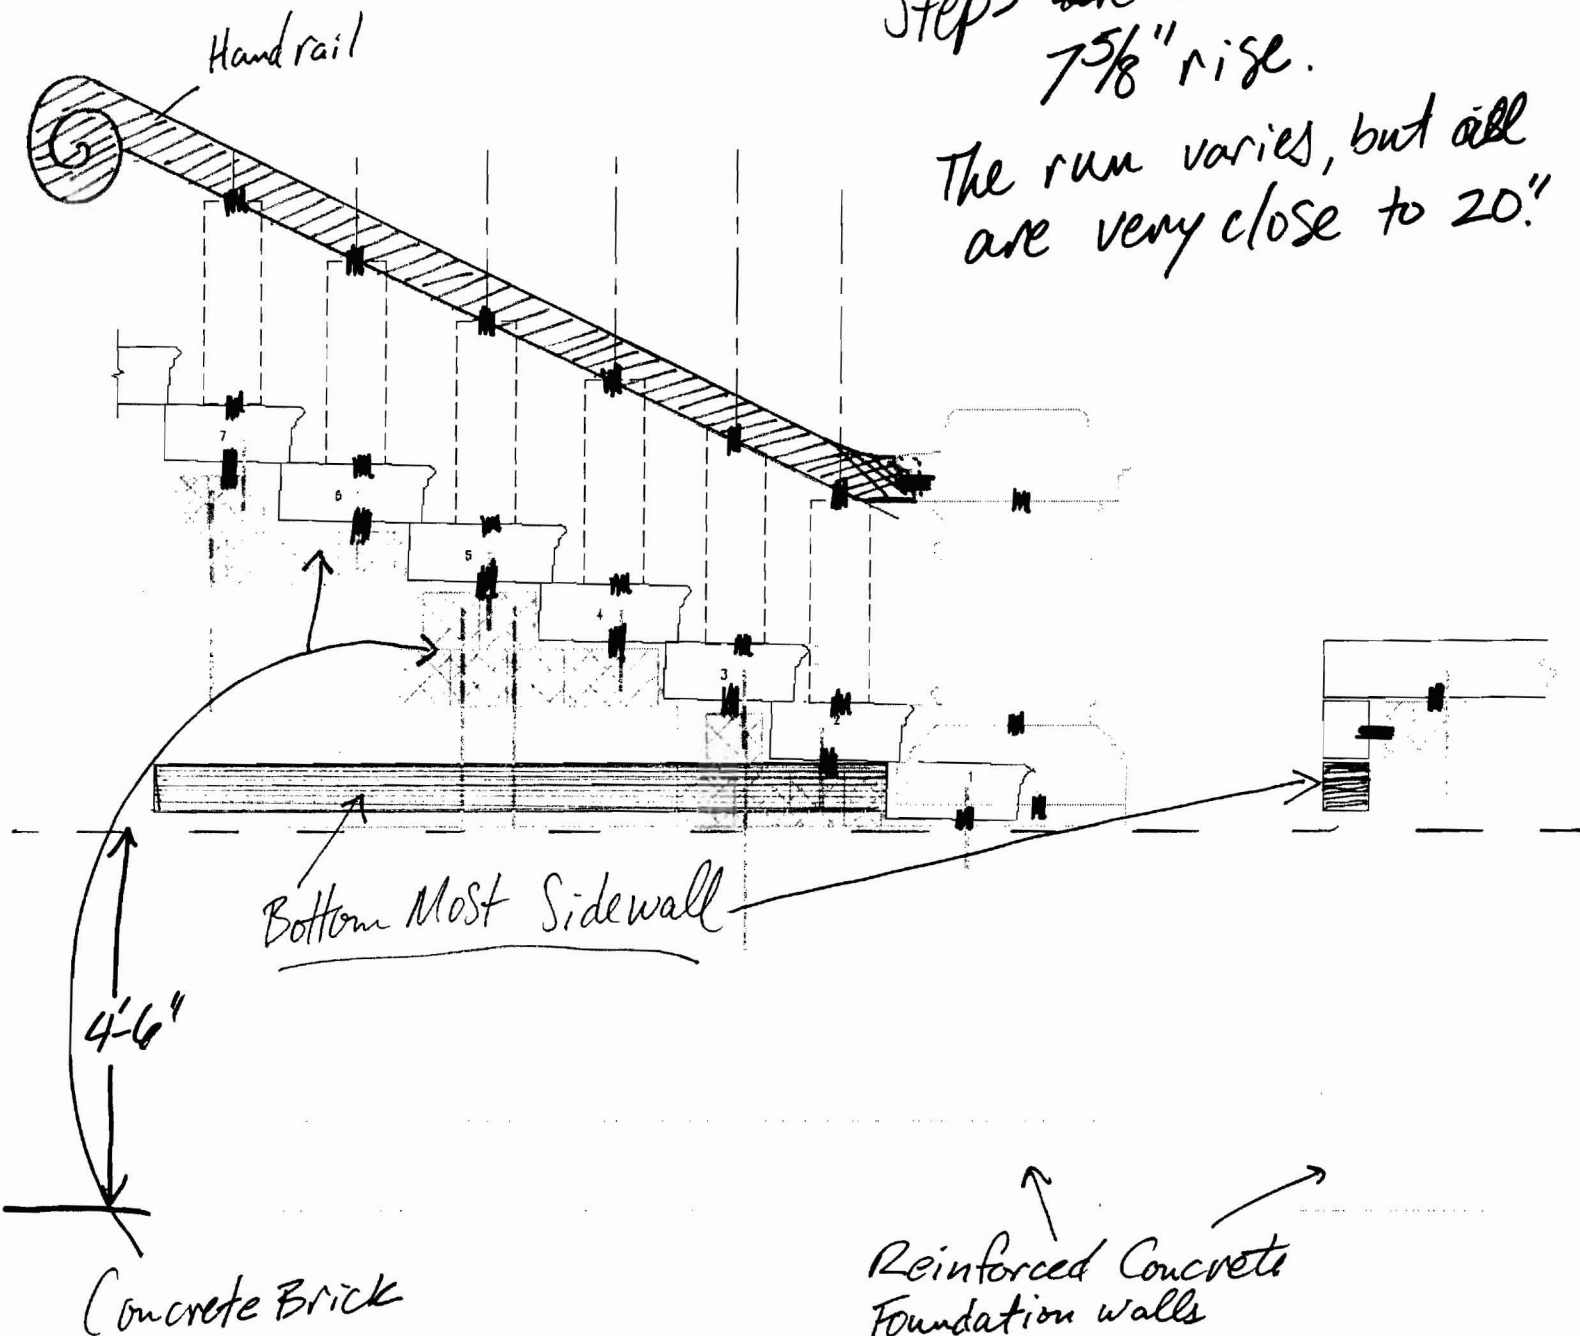 Handrail
Steps are
7 5/8" rise.
The run varies, but all
are very close to 20."
7
6
5
4
3
2
1
Bottom Most Sidewall
4'-6"
Concrete Brick
Reinforced Concrete
Foundation walls